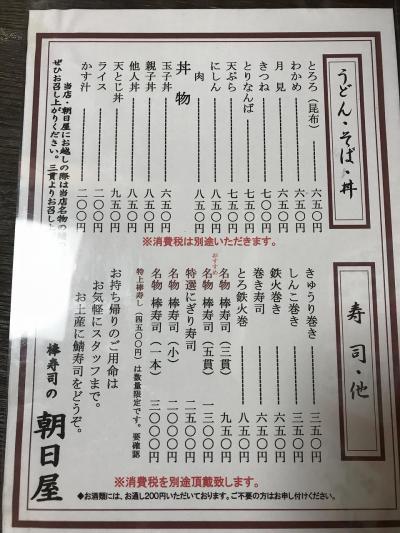 うどん・そば・丼
とろろ（昆布）六五〇円
わかめ 六五〇円
月見 六五〇円
きつね 七〇〇円
とりなんば 七五〇円
天ぷら 七五〇円
にしん 八五〇円
肉 八五〇円
丼物
玉子丼 六五〇円
親子丼 八五〇円
他人丼 八五〇円
天とじ丼 九五〇円
ライス 二〇〇円
かす汁 二〇〇円
※消費税は別途いただきます。
寿司・他
きゅうり巻き 三五〇円
しんこ巻き 三五〇円
鉄火巻き 六五〇円
巻き寿司 六五〇円
とろ鉄火巻 八五〇円
おすすめ
名物 棒寿司（三貫）九五〇円
名物 棒寿司（五貫）一三〇〇円
特選にぎり寿司 二五〇〇円
名物 棒寿司（小）二〇〇〇円
名物 棒寿司（一本）三〇〇〇円
特上棒寿し（四五〇〇円）は数量限定です。要確認
お持ち帰りのご用命は
お気軽にスタッフまで。
お土産に鯖寿司をどうぞ。
当店・朝日屋にお越しの際は当店名物の
ぜひお召し上がりください。三貫よりお召し上
棒寿司の 朝日屋
※消費税を別途頂戴致します。
◆お酒類には、お通し200円いただいております。ご不要の方はお申し付けください。